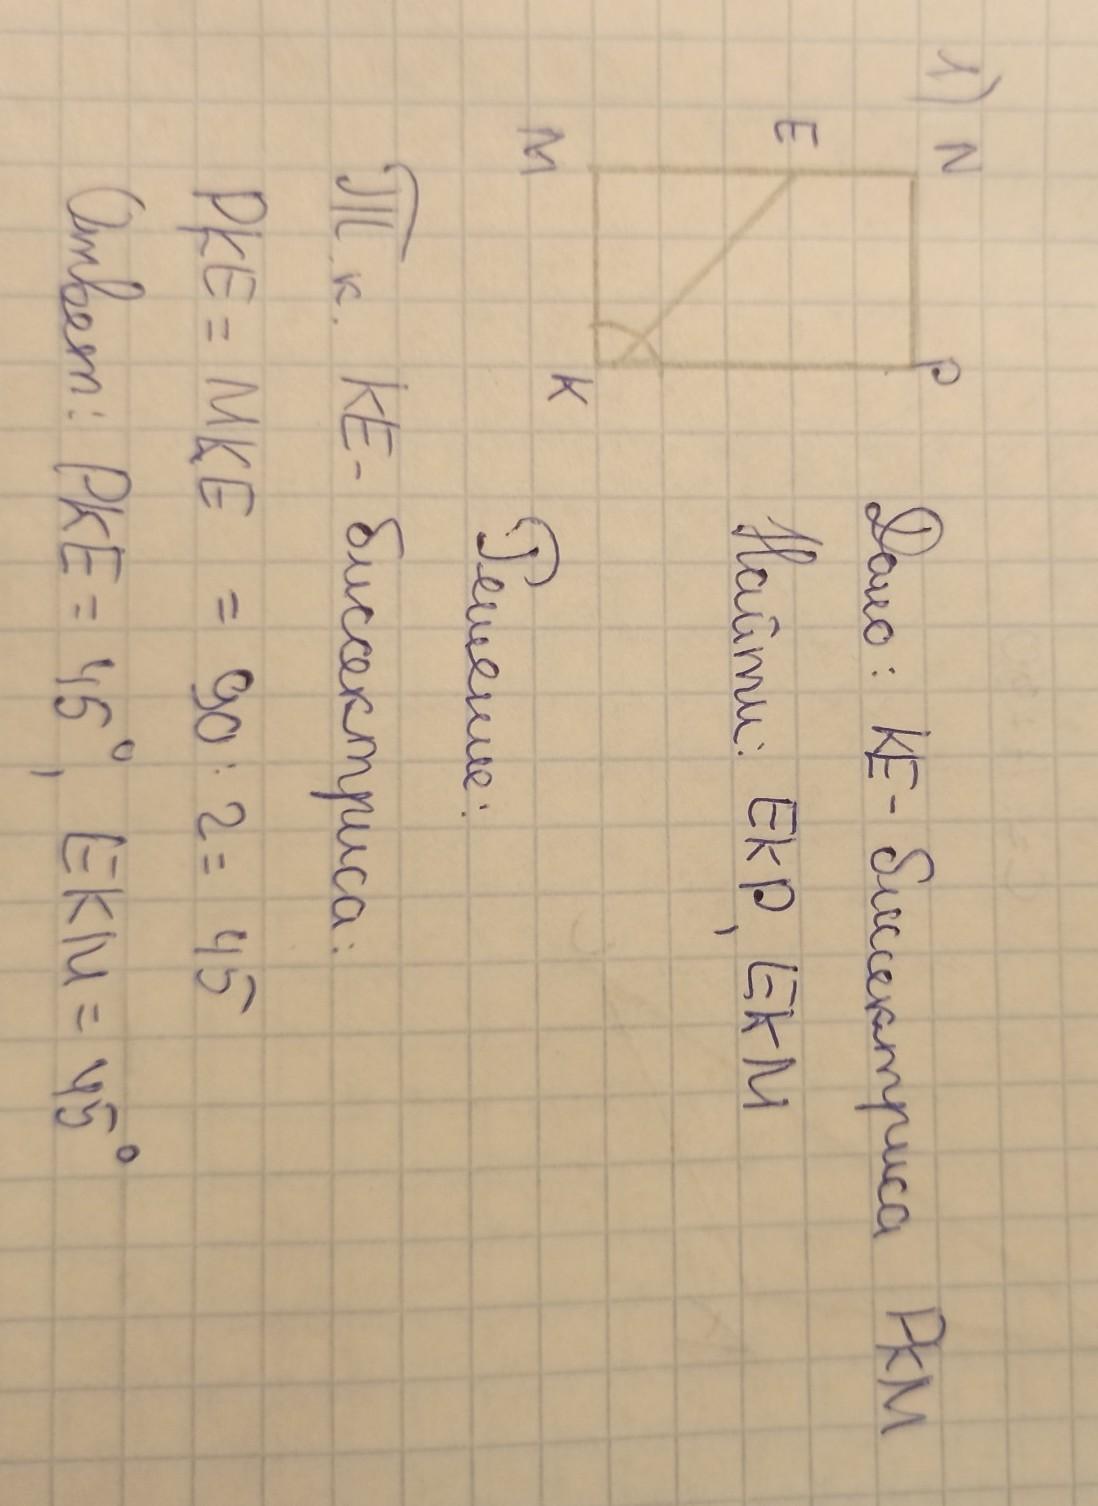 1)
N
P
E
M
K
Дано: KE - биссектриса PKM
Найти: EKP, EKM
Решение:
Т.к. KE - биссектриса:
PKE = MKE = 90 : 2 = 45
Ответ: PKE = 45°, EKM = 45°